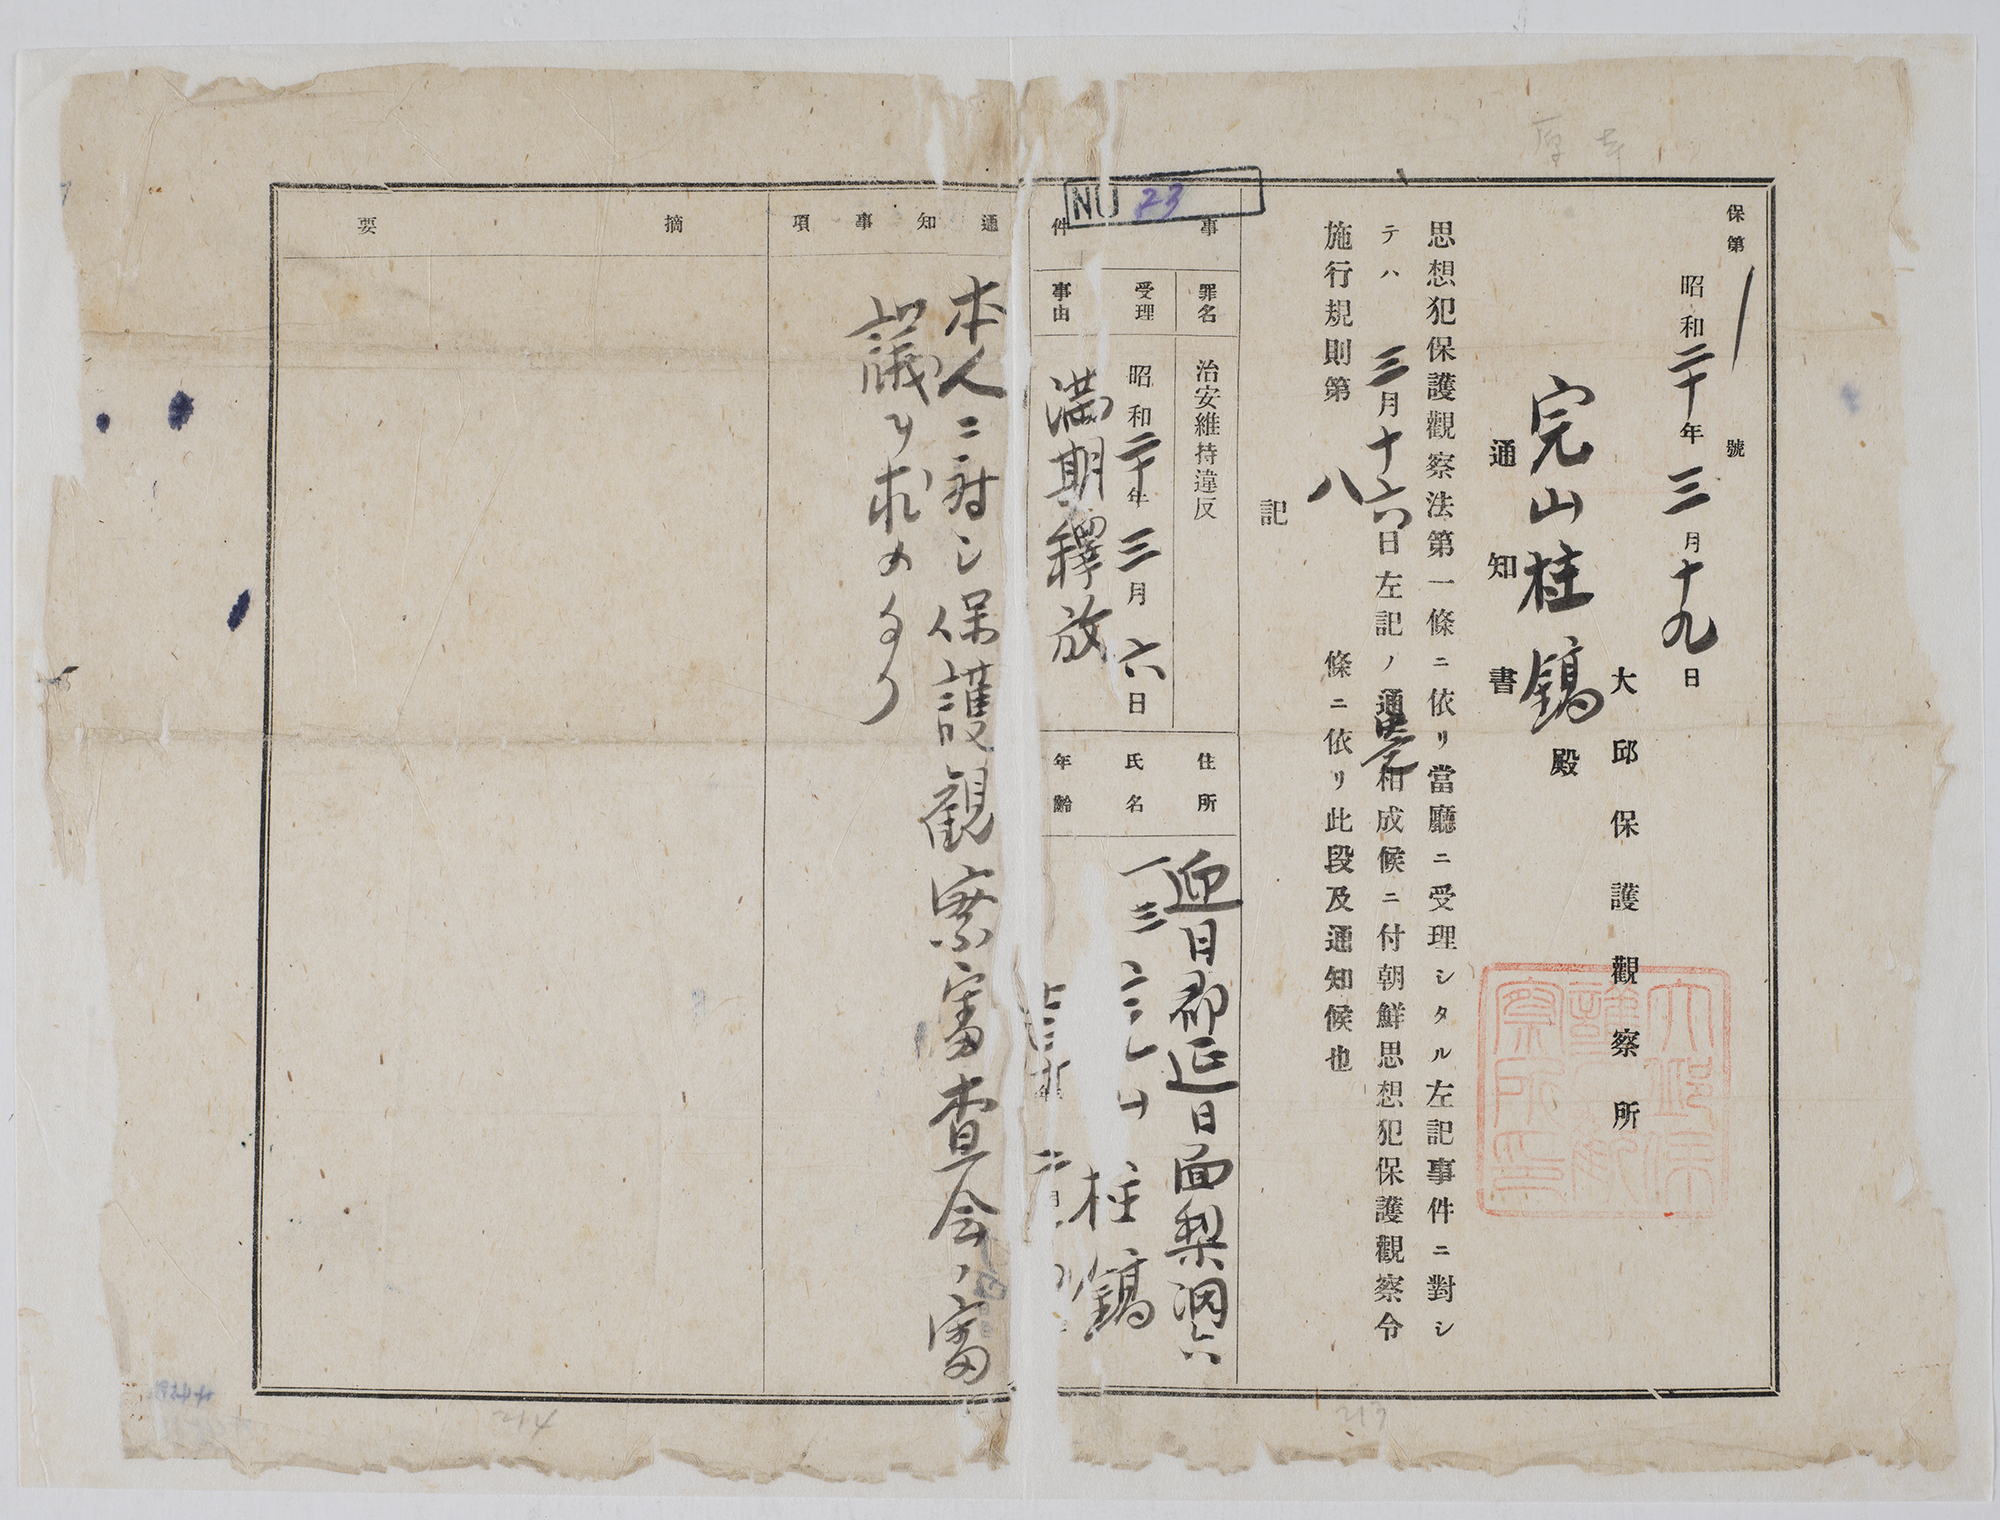 保第 一 號
昭和二十年三月十九日
大邱保護觀察所
完山柱鎬 殿
通知書
思想犯保護觀察法第一條ニ依リ當廳ニ受理シタル左記事件ニ對シ
テハ 三月十六日左記ノ通 相成候ニ付朝鮮思想犯保護觀察令
施行規則第 八 條ニ依リ此段及通知候也
記
事件
罪名 治安維持違反
受理 昭和二十年三月六日
事由 滿期釋放
住所 迎日郡延日面梨洞六
一三
氏名 柱鎬
年齡 二月
通知事項
本人ニ対シ保護観察審査会ノ審
議ヲ求メタリ
摘要
NO 23
大邱保護觀察所印
213
214